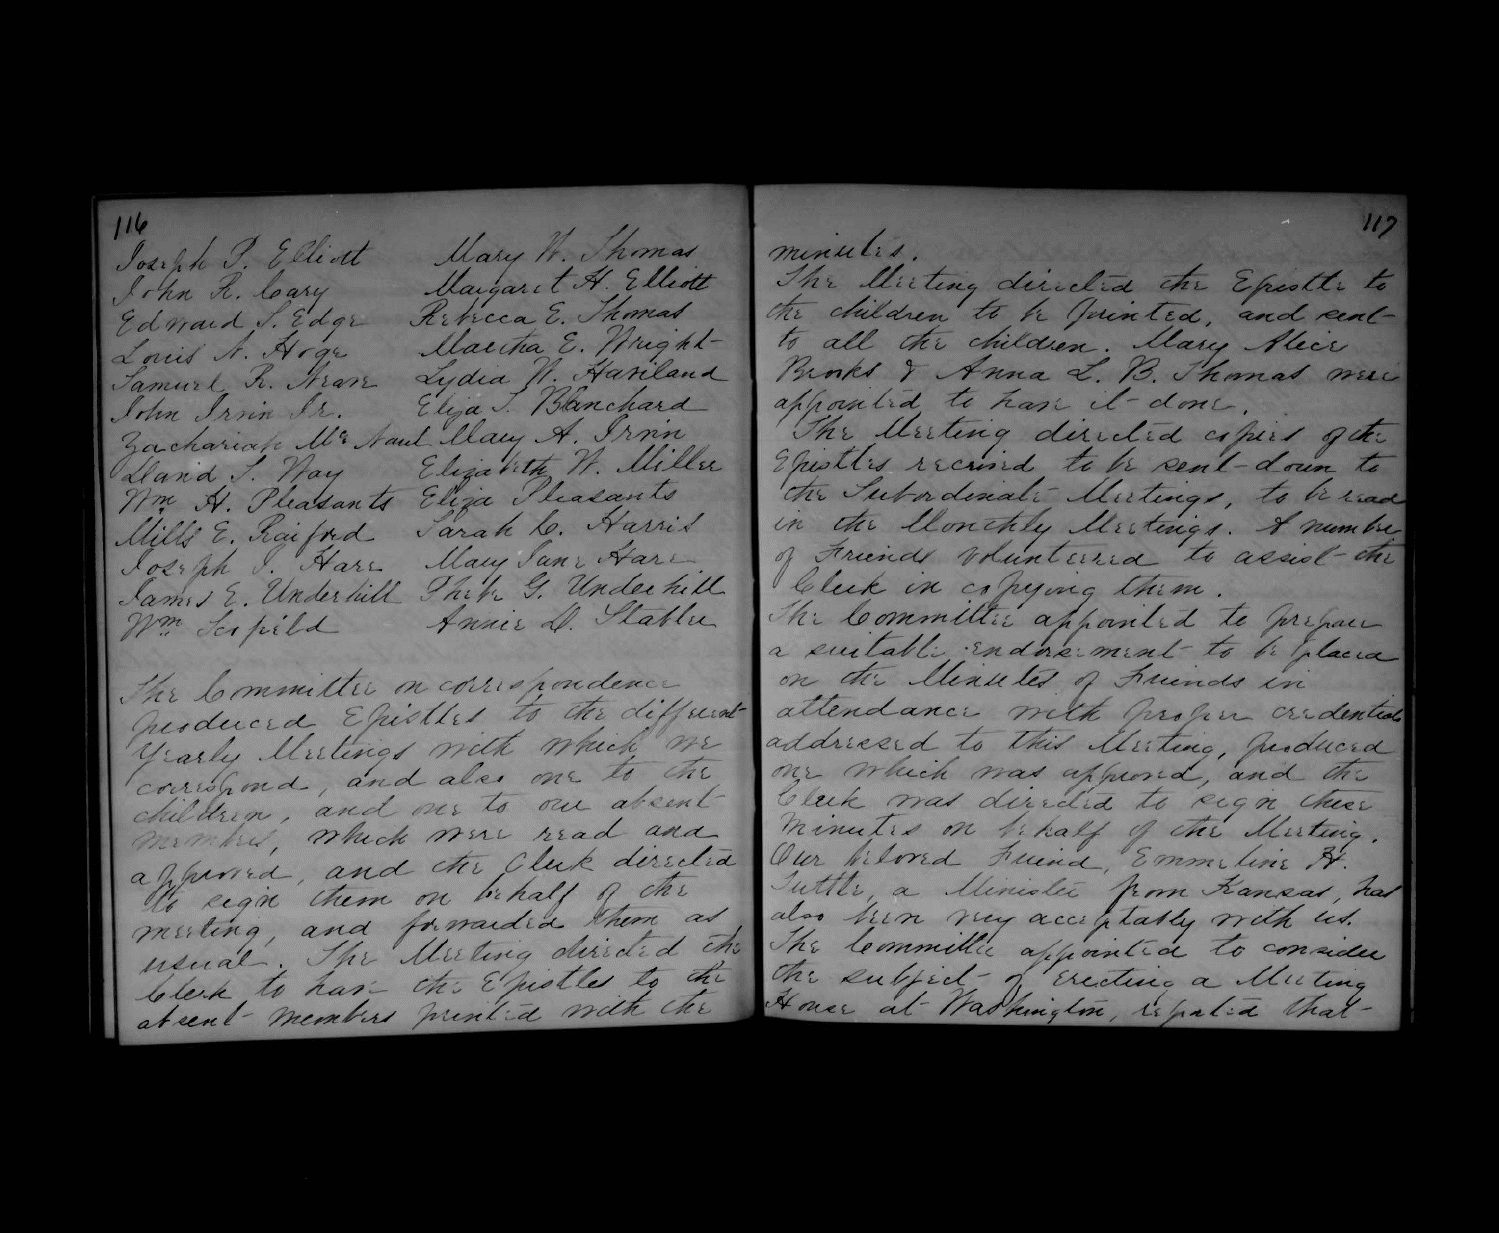 116
Joseph P. Elliott Mary W. Thomas
John R. Cary Margaret H. Elliott
Edward S. Edge Rebecca E. Thomas
Louis N. Hoge Martha E. Wright
Samuel R. Neave Lydia W. Haviland
John Irvin Jr. Eliza S. Blanchard
Zachariah McNaul Mary A. Irvin
David S. Way Elizabeth W. Miller
Wm H. Pleasants Eliza Pleasants
Mills E. Raiford Sarah C. Harris
Joseph J. Hare Mary Jane Hare
James E. Underhill Phebe G. Underhill
Wm Scofield Annie D. Stabler
The Committee on correspondence
produced Epistles to the different
Yearly Meetings with which we
correspond, and also one to the
children, and one to our absent
members, which were read and
approved, and the Clerk directed
to sign them on behalf of the
meeting, and forwarded them as
usual. The Meeting directed the
Clerk to have the Epistles to the
absent members printed with the
117
minutes.
The Meeting directed the Epistle to
the children to be printed, and sent
to all the children. Mary Alice
Brooks & Anna L. B. Thomas were
appointed to have it done.
The Meeting directed copies of the
Epistles received to be sent down to
the Subordinate Meetings, to be read
in the Monthly Meetings. A number
of Friends volunteered to assist the
Clerk in copying them.
The Committee appointed to prepare
a suitable endorsement to be placed
on the Minutes of Friends in
attendance with proper credentials
addressed to this Meeting, produced
one which was approved, and the
Clerk was directed to sign these
Minutes on behalf of the Meeting.
Our beloved Friend, Emmeline H.
Tuttle, a Minister from Kansas, has
also been very acceptably with us.
The Committee appointed to consider
the subject of erecting a Meeting
House at Washington, reported that